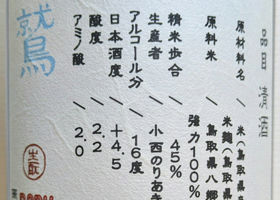 品質表示
原材料名／米(鳥取県
米麹(鳥取県
原料米／鳥取県八郷
強力100%
精米歩合／45%
生産者／小西のりあき
アルコール分／16度
日本酒度／+4.5
酸度／2.2
アミノ酸／2.0
鷲
生酛